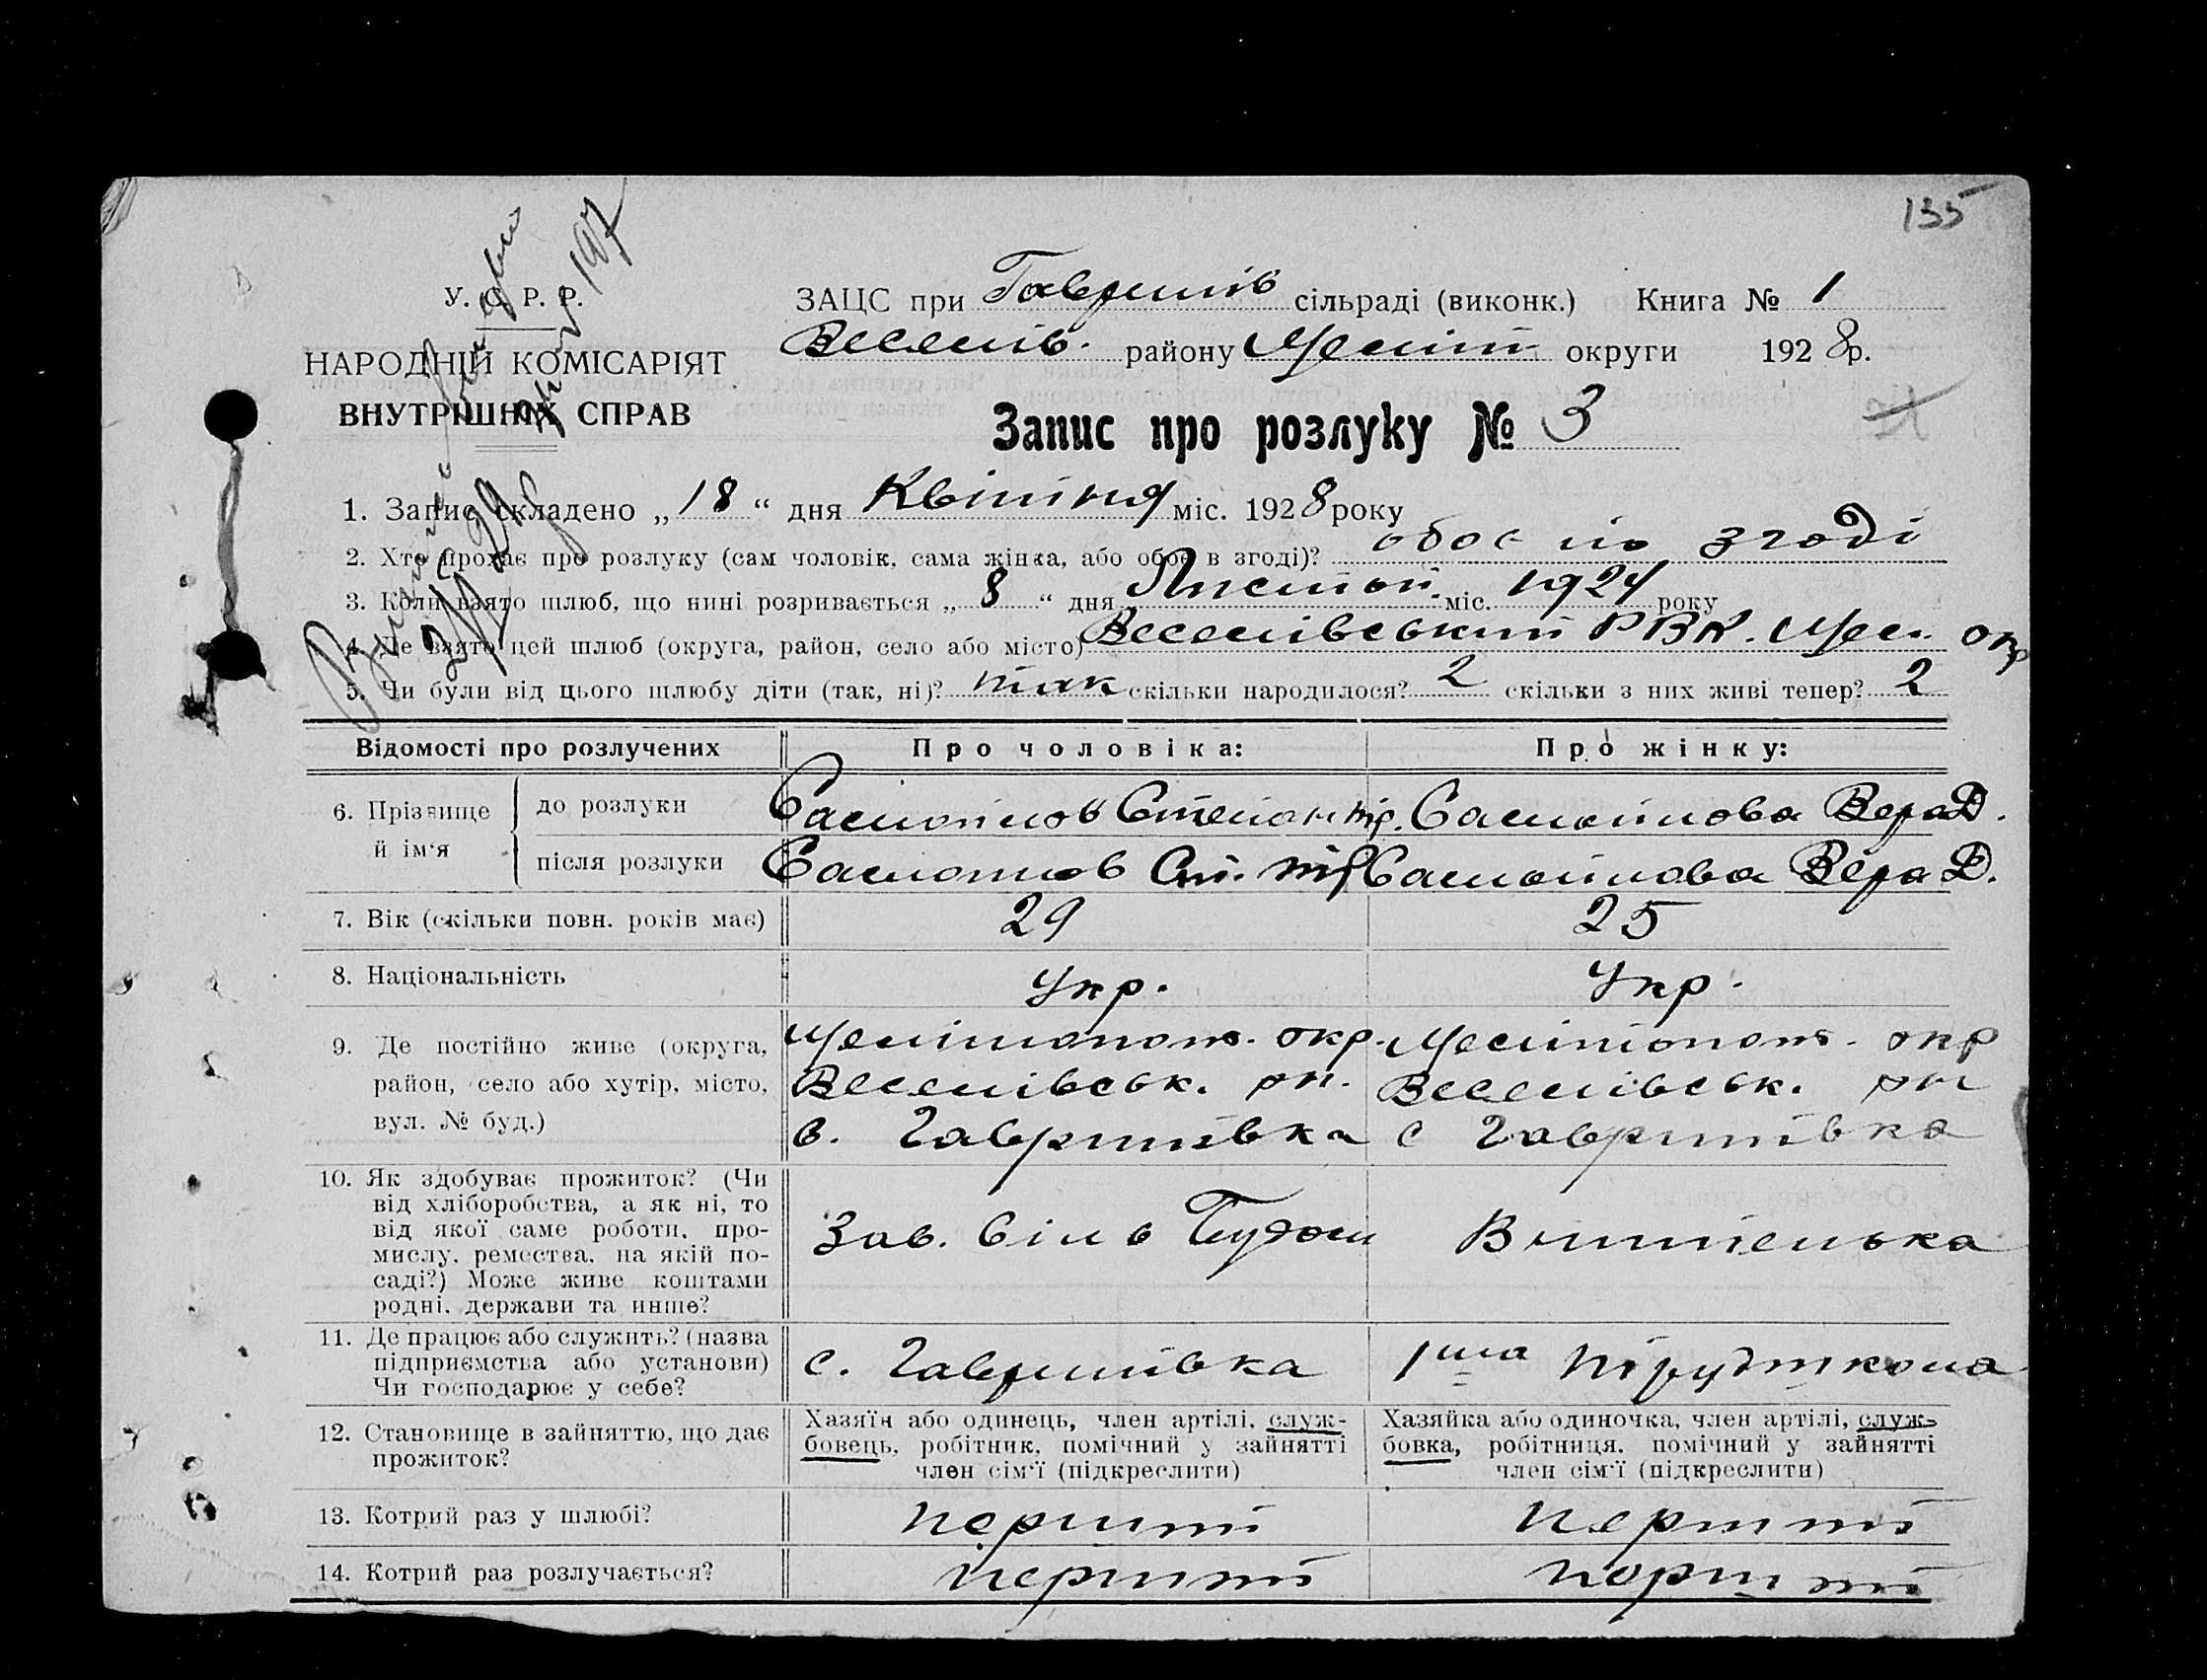 135
У. С. Р. Р.
НАРОДНІЙ КОМІСАРІЯТ
ВНУТРІШНІХ СПРАВ
ЗАЦС при Гаврилів сільраді (виконк.) Книга № 1
Веселів. району Меліт округи 1928 р.
Запис про розлуку № 3
1. Запис складено „18“ дня Квітня міс. 1928 року
2. Хто прохає про розлуку (сам чоловік, сама жінка, або обоє в згоді)? обоє по згоді
3. Коли взято шлюб, що нині розривається „8“ дня Листоп. міс. 1924 року
4. Де взято цей шлюб (округа, район, село або місто) Веселівський РВК. Мел. окр
5. Чи були від цього шлюбу діти (так, ні)? так скільки народилося? 2 скільки з них живі тепер? 2
Відомості про розлучених Про чоловіка: Про жінку:
6. Прізвище й ім‘я до розлуки Степан Вера Д.
після розлуки Вера Д.
7. Вік (скільки повн. років має) 29 25
8. Національність Укр. Укр.
9. Де постійно живе (округа, район, село або хутір, місто, вул. № буд.)
Мелітопол. окр. Мелітопол. окр
Веселівськ. рн. Веселівськ. рн
с. Гаврилівка с Гаврилівка
10. Як здобуває прожиток? (Чи
від хліборобства, а як ні, то
від якої саме роботи, про-
мислу, ремества, на якій по-
саді?) Може живе коштами
родні, держави та инше?
Зав. Сіль Будом Вчителька
11. Де працює або служить? (назва
підприємства або установи)
Чи господарює у себе?
с. Гаврилівка 1ша Трудшкола
12. Становище в зайняттю, що дає
прожиток?
Хазяїн або одинець, член артілі, служ-
бовець, робітник, помічний у зайнятті
член сім‘ї (підкреслити)
Хазяйка або одиночка, член артілі, служ-
бовка, робітниця, помічний у зайнятті
член сім‘ї (підкреслити)
13. Котрий раз у шлюбі? перший перший
14. Котрий раз розлучається? перший перший